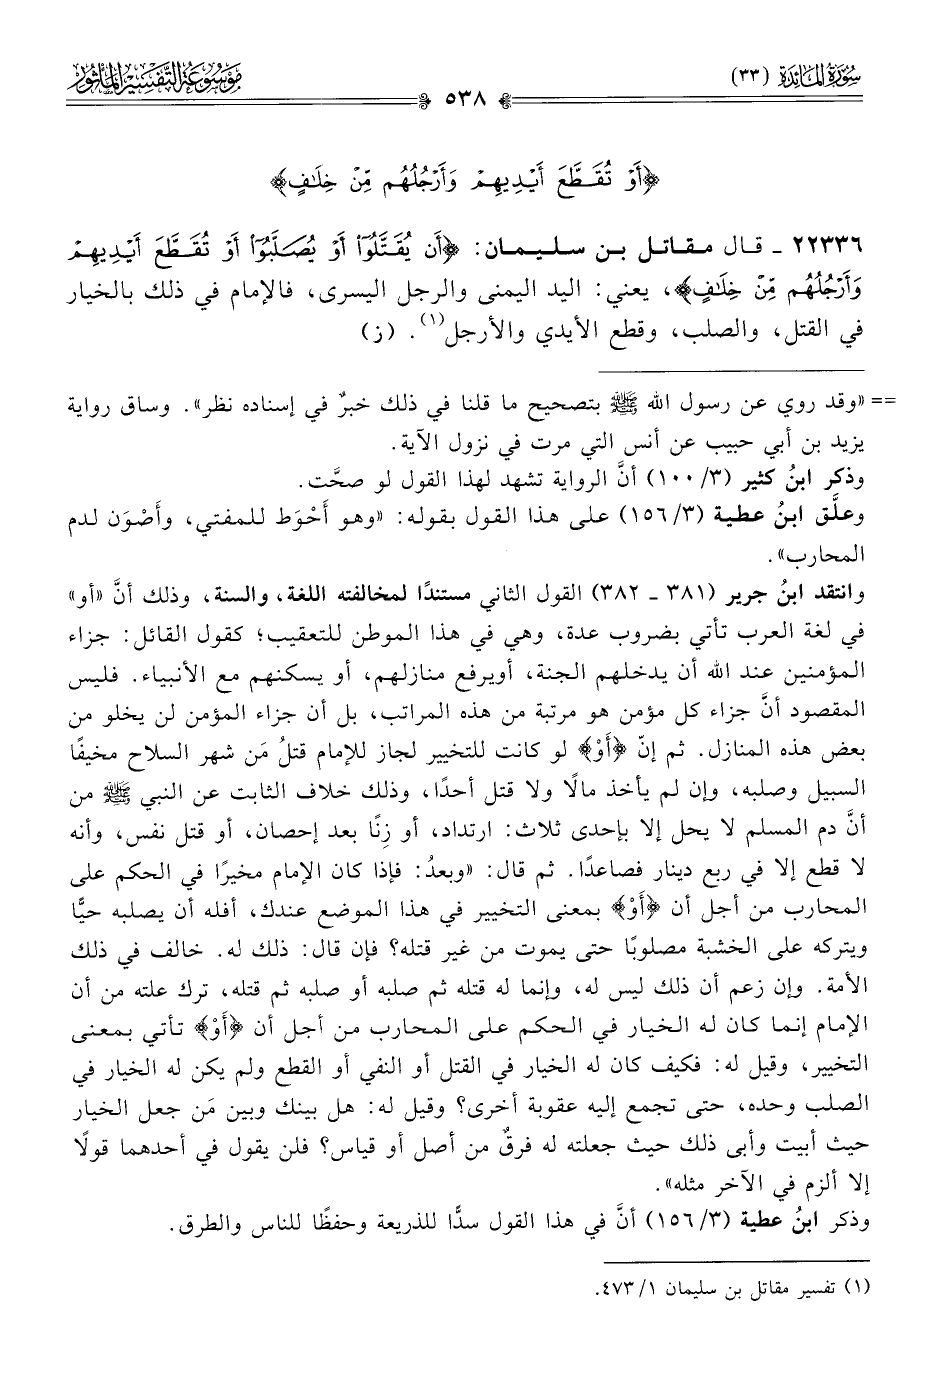 سورة المائدة (٣٣)
موسوعة التفسير المأثور
٥٣٨
﴿أَوْ تُقَطَّعَ أَيْدِيهِمْ وَأَرْجُلُهُم مِّنْ خِلَٰفٍ﴾
٢٢٣٣٦ ـ قال مقاتل بن سليمان: ﴿أَن يُقَتَّلُوٓا۟ أَوْ يُصَلَّبُوٓا۟ أَوْ تُقَطَّعَ أَيْدِيهِمْ
وَأَرْجُلُهُم مِّنْ خِلَٰفٍ﴾، يعني: اليد اليمنى والرجل اليسرى، فالإمام في ذلك بالخيار
في القتل، والصلب، وقطع الأيدي والأرجل(١). (ز)
== «وقد روي عن رسول الله ﷺ بتصحيح ما قلنا في ذلك خبرٌ في إسناده نظر». وساق رواية
يزيد بن أبي حبيب عن أنس التي مرت في نزول الآية.
وذكر ابنُ كثير (٣/ ١٠٠) أنَّ الرواية تشهد لهذا القول لو صحَّت.
وعلَّق ابنُ عطية (٣/ ١٥٦) على هذا القول بقوله: «وهو أَحْوَط للمفتي، وأَصْوَن لدم
المحارب».
وانتقد ابنُ جرير (٣٨١ ـ ٣٨٢) القول الثاني مستندًا لمخالفته اللغة، والسنة، وذلك أنَّ «أو»
في لغة العرب تأتي بضروب عدة، وهي في هذا الموطن للتعقيب؛ كقول القائل: جزاء
المؤمنين عند الله أن يدخلهم الجنة، أويرفع منازلهم، أو يسكنهم مع الأنبياء. فليس
المقصود أنَّ جزاء كل مؤمن هو مرتبة من هذه المراتب، بل أن جزاء المؤمن لن يخلو من
بعض هذه المنازل. ثم إنّ ﴿أَوْ﴾ لو كانت للتخيير لجاز للإمام قتلُ مَن شهر السلاح مخيفًا
السبيل وصلبه، وإن لم يأخذ مالًا ولا قتل أحدًا، وذلك خلاف الثابت عن النبي ﷺ من
أنَّ دم المسلم لا يحل إلا بإحدى ثلاث: ارتداد، أو زنًا بعد إحصان، أو قتل نفس، وأنه
لا قطع إلا في ربع دينار فصاعدًا. ثم قال: «وبعدُ: فإذا كان الإمام مخيرًا في الحكم على
المحارب من أجل أن ﴿أَوْ﴾ بمعنى التخيير في هذا الموضع عندك، أفله أن يصلبه حيًّا
ويتركه على الخشبة مصلوبًا حتى يموت من غير قتله؟ فإن قال: ذلك له. خالف في ذلك
الأمة. وإن زعم أن ذلك ليس له، وإنما له قتله ثم صلبه أو صلبه ثم قتله، ترك علته من أن
الإمام إنما كان له الخيار في الحكم على المحارب من أجل أن ﴿أَوْ﴾ تأتي بمعنى
التخيير، وقيل له: فكيف كان له الخيار في القتل أو النفي أو القطع ولم يكن له الخيار في
الصلب وحده، حتى تجمع إليه عقوبة أخرى؟ وقيل له: هل بينك وبين مَن جعل الخيار
حيث أبيت وأبى ذلك حيث جعلته له فرقٌ من أصل أو قياس؟ فلن يقول في أحدهما قولًا
إلا ألزم في الآخر مثله».
وذكر ابنُ عطية (٣/ ١٥٦) أنَّ في هذا القول سدًّا للذريعة وحفظًا للناس والطرق.
(١) تفسير مقاتل بن سليمان ١/ ٤٧٣.